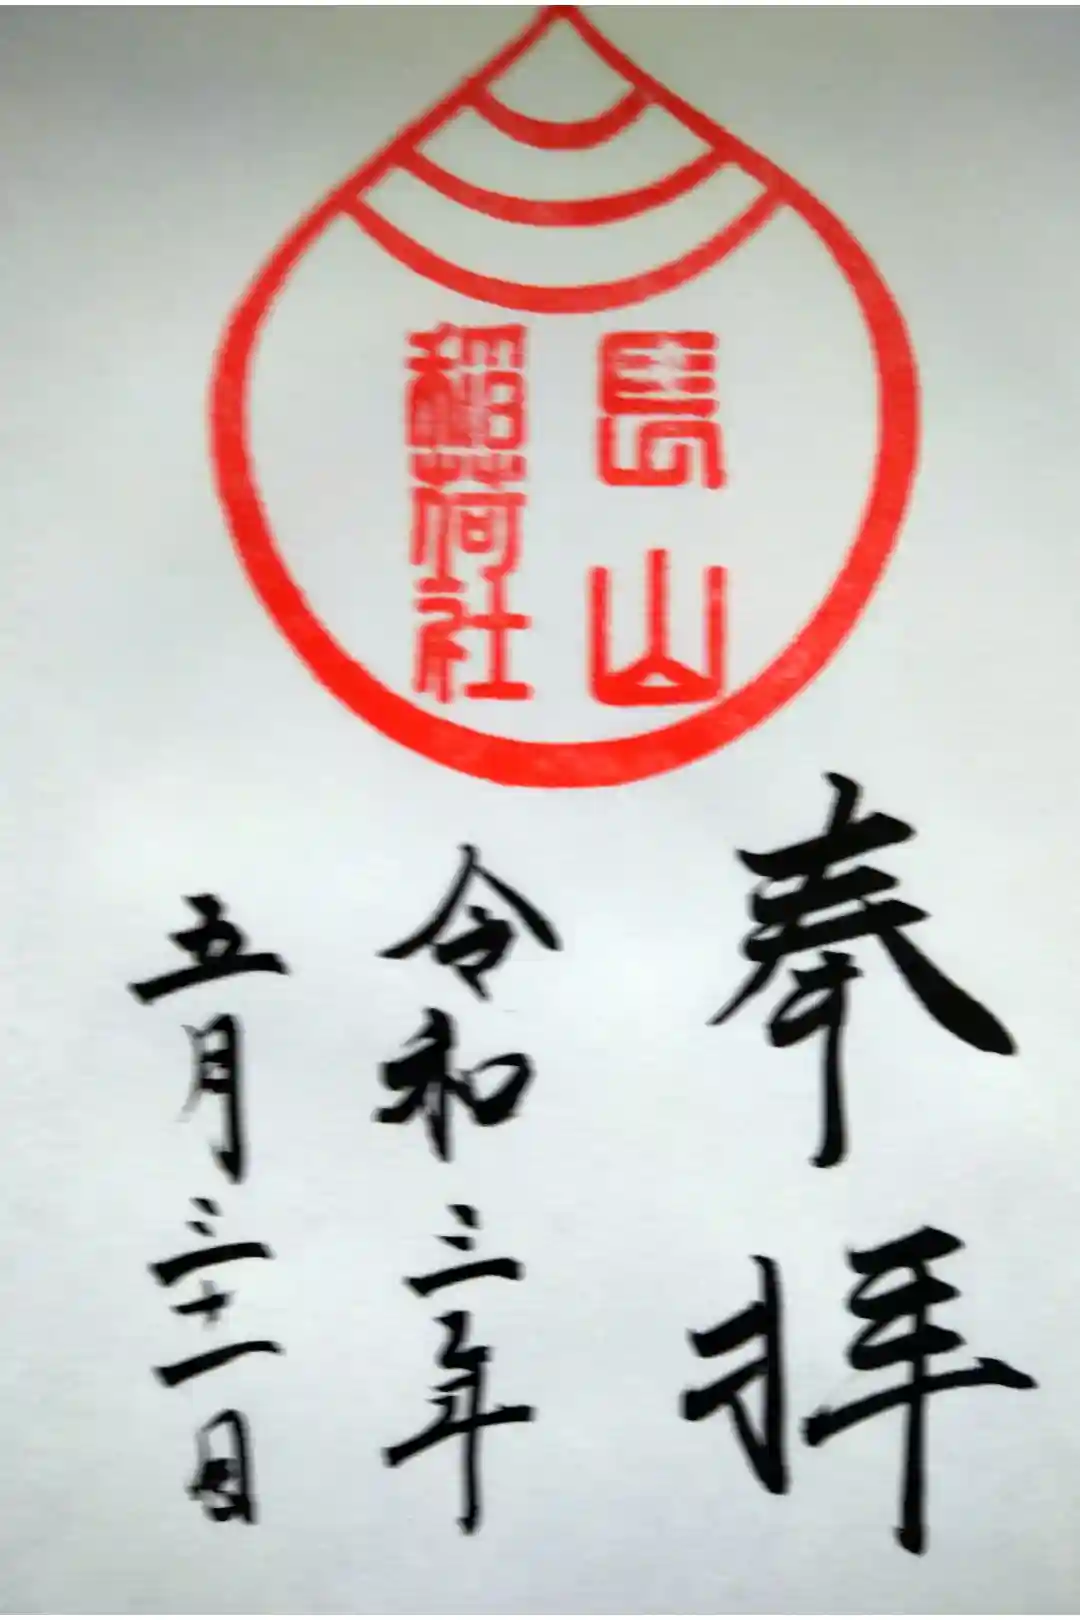 山
稲荷社
奉拝
令和三年
五月三十一日